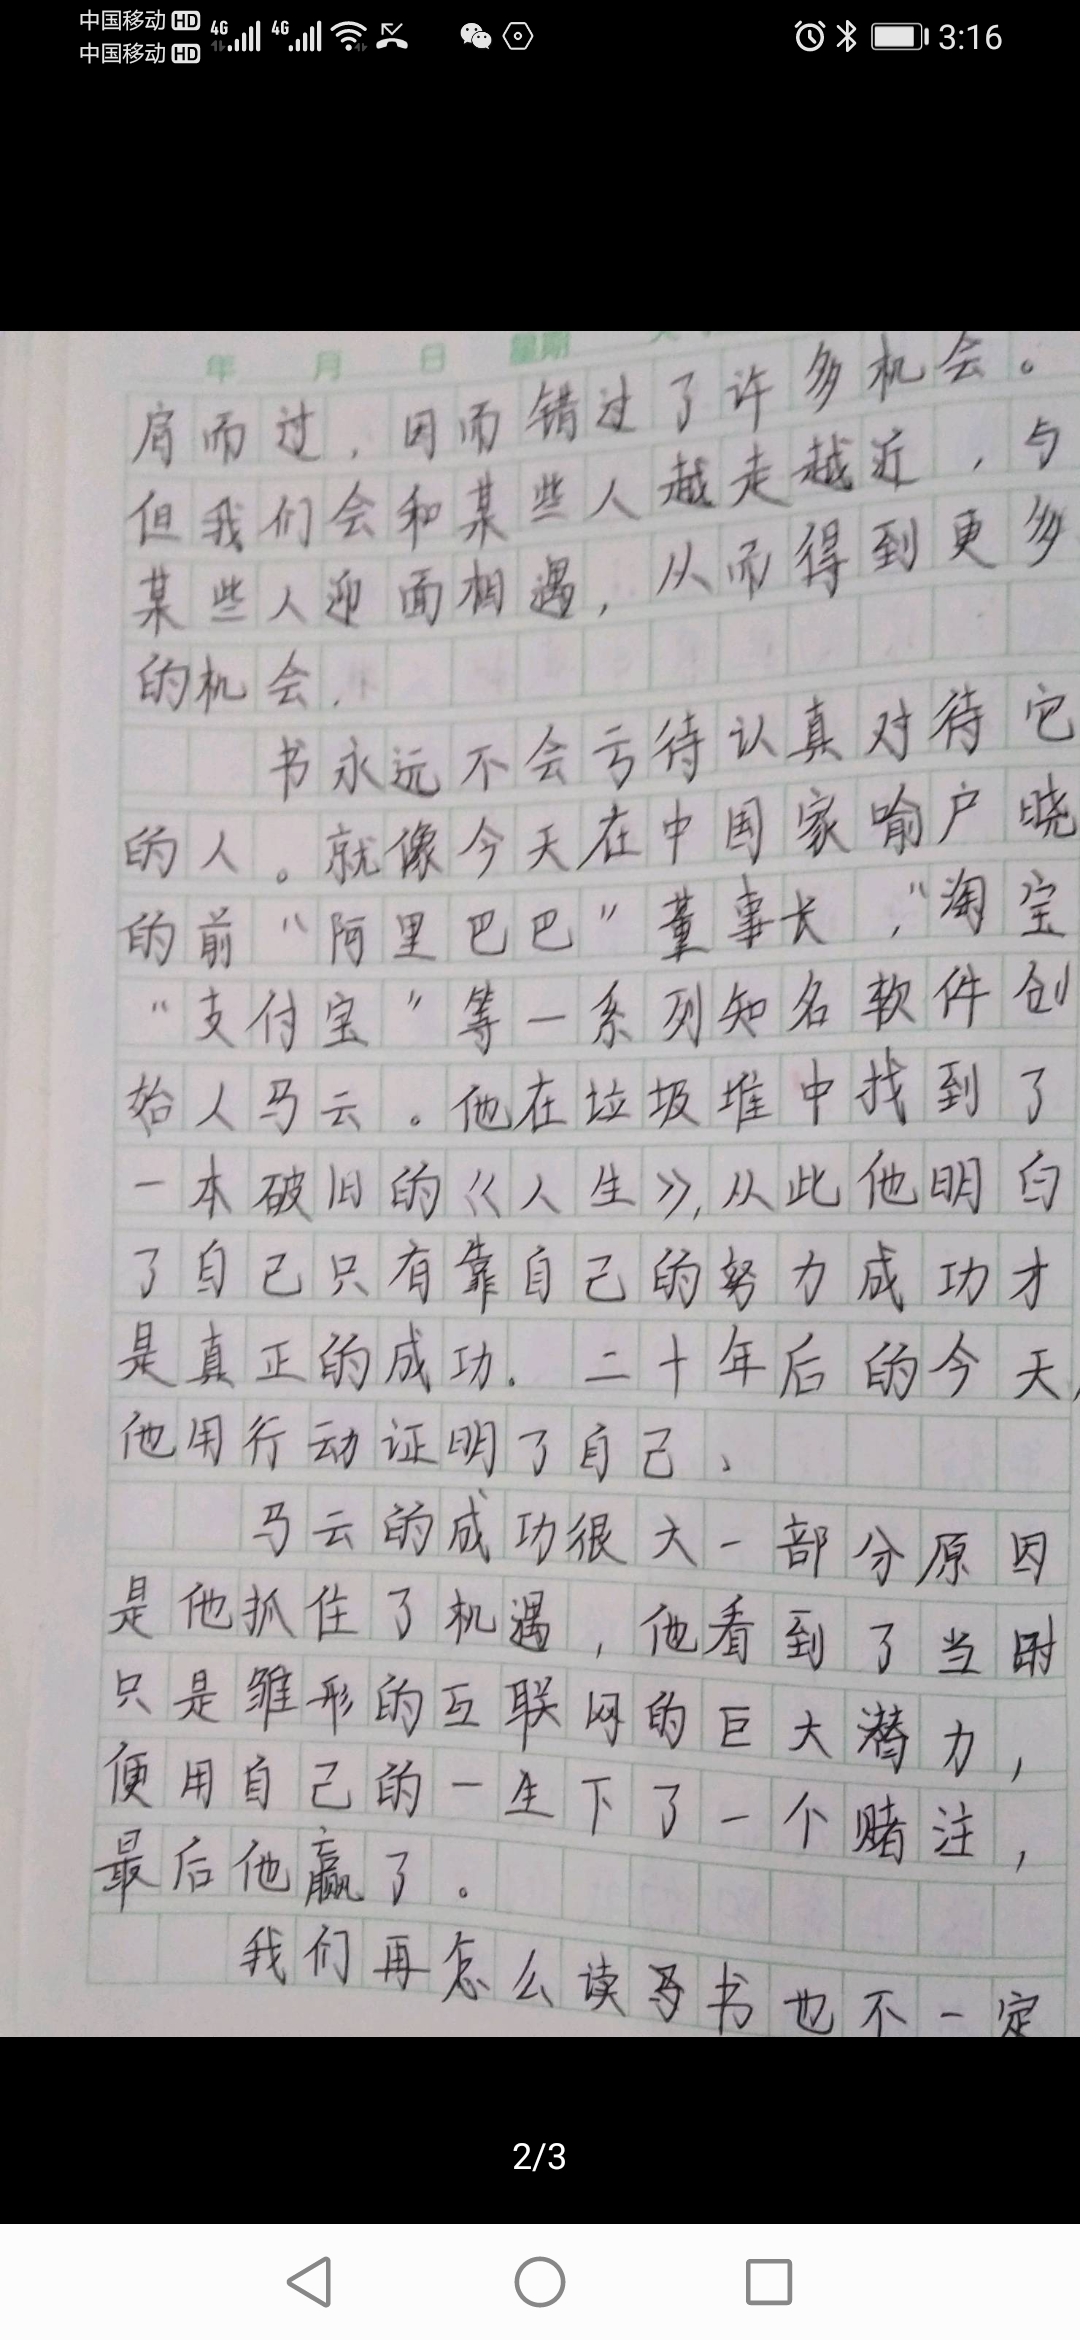 中国移动 HD 4G 4G 3:16
中国移动 HD
年 月 日 星期
肩而过，因而错过了许多机会。
但我们会和某些人越走越近，与
某些人迎面相遇，从而得到更多
的机会.
书永远不会亏待认真对待它
的人。就像今天在中国家喻户晓
的前“阿里巴巴”董事长，“淘宝
“支付宝”等一系列知名软件创
始人马云。他在垃圾堆中找到了
一本破旧的《人生》,从此他明白
了自己只有靠自己的努力成功才
是真正的成功. 二十年后的今天,
他用行动证明了自己、
马云的成功很大一部分原因
是他抓住了机遇，他看到了当时
只是雏形的互联网的巨大潜力，
便用自己的一生下了一个赌注，
最后他赢了。
我们再怎么读书也不一定
2/3